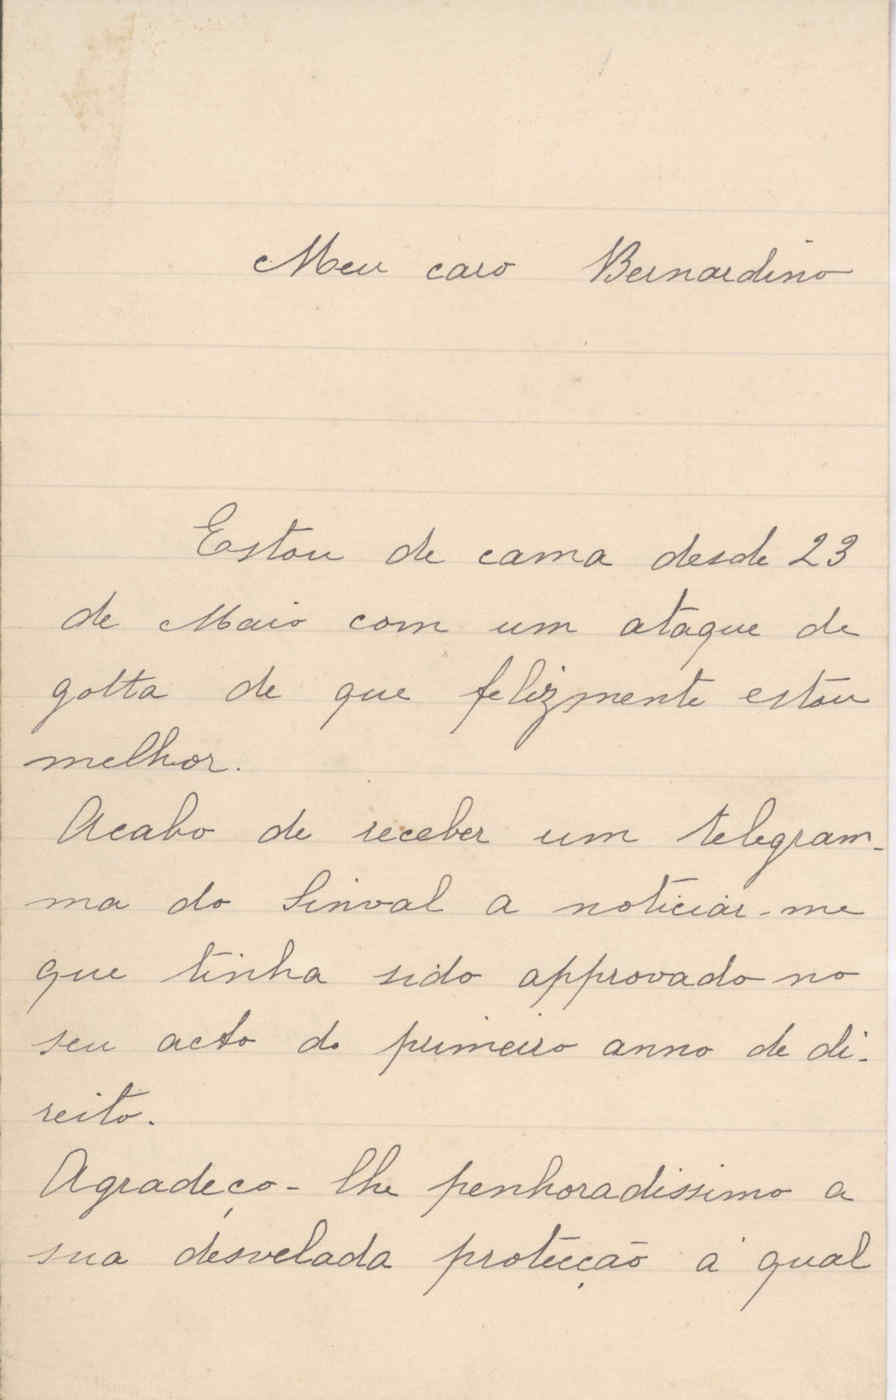 Meu caro Bernardino
Estou de cama desde 23
de Maio com um ataque de
gotta de que felizmente estou
melhor.
Acabo de receber um telegram-
ma do Sinval a noticiar-me
que tinha sido approvado no
seu acto do primeiro anno de di-
reito.
Agradeço-lhe penhoradissimo a
sua desvelada protecção á qual